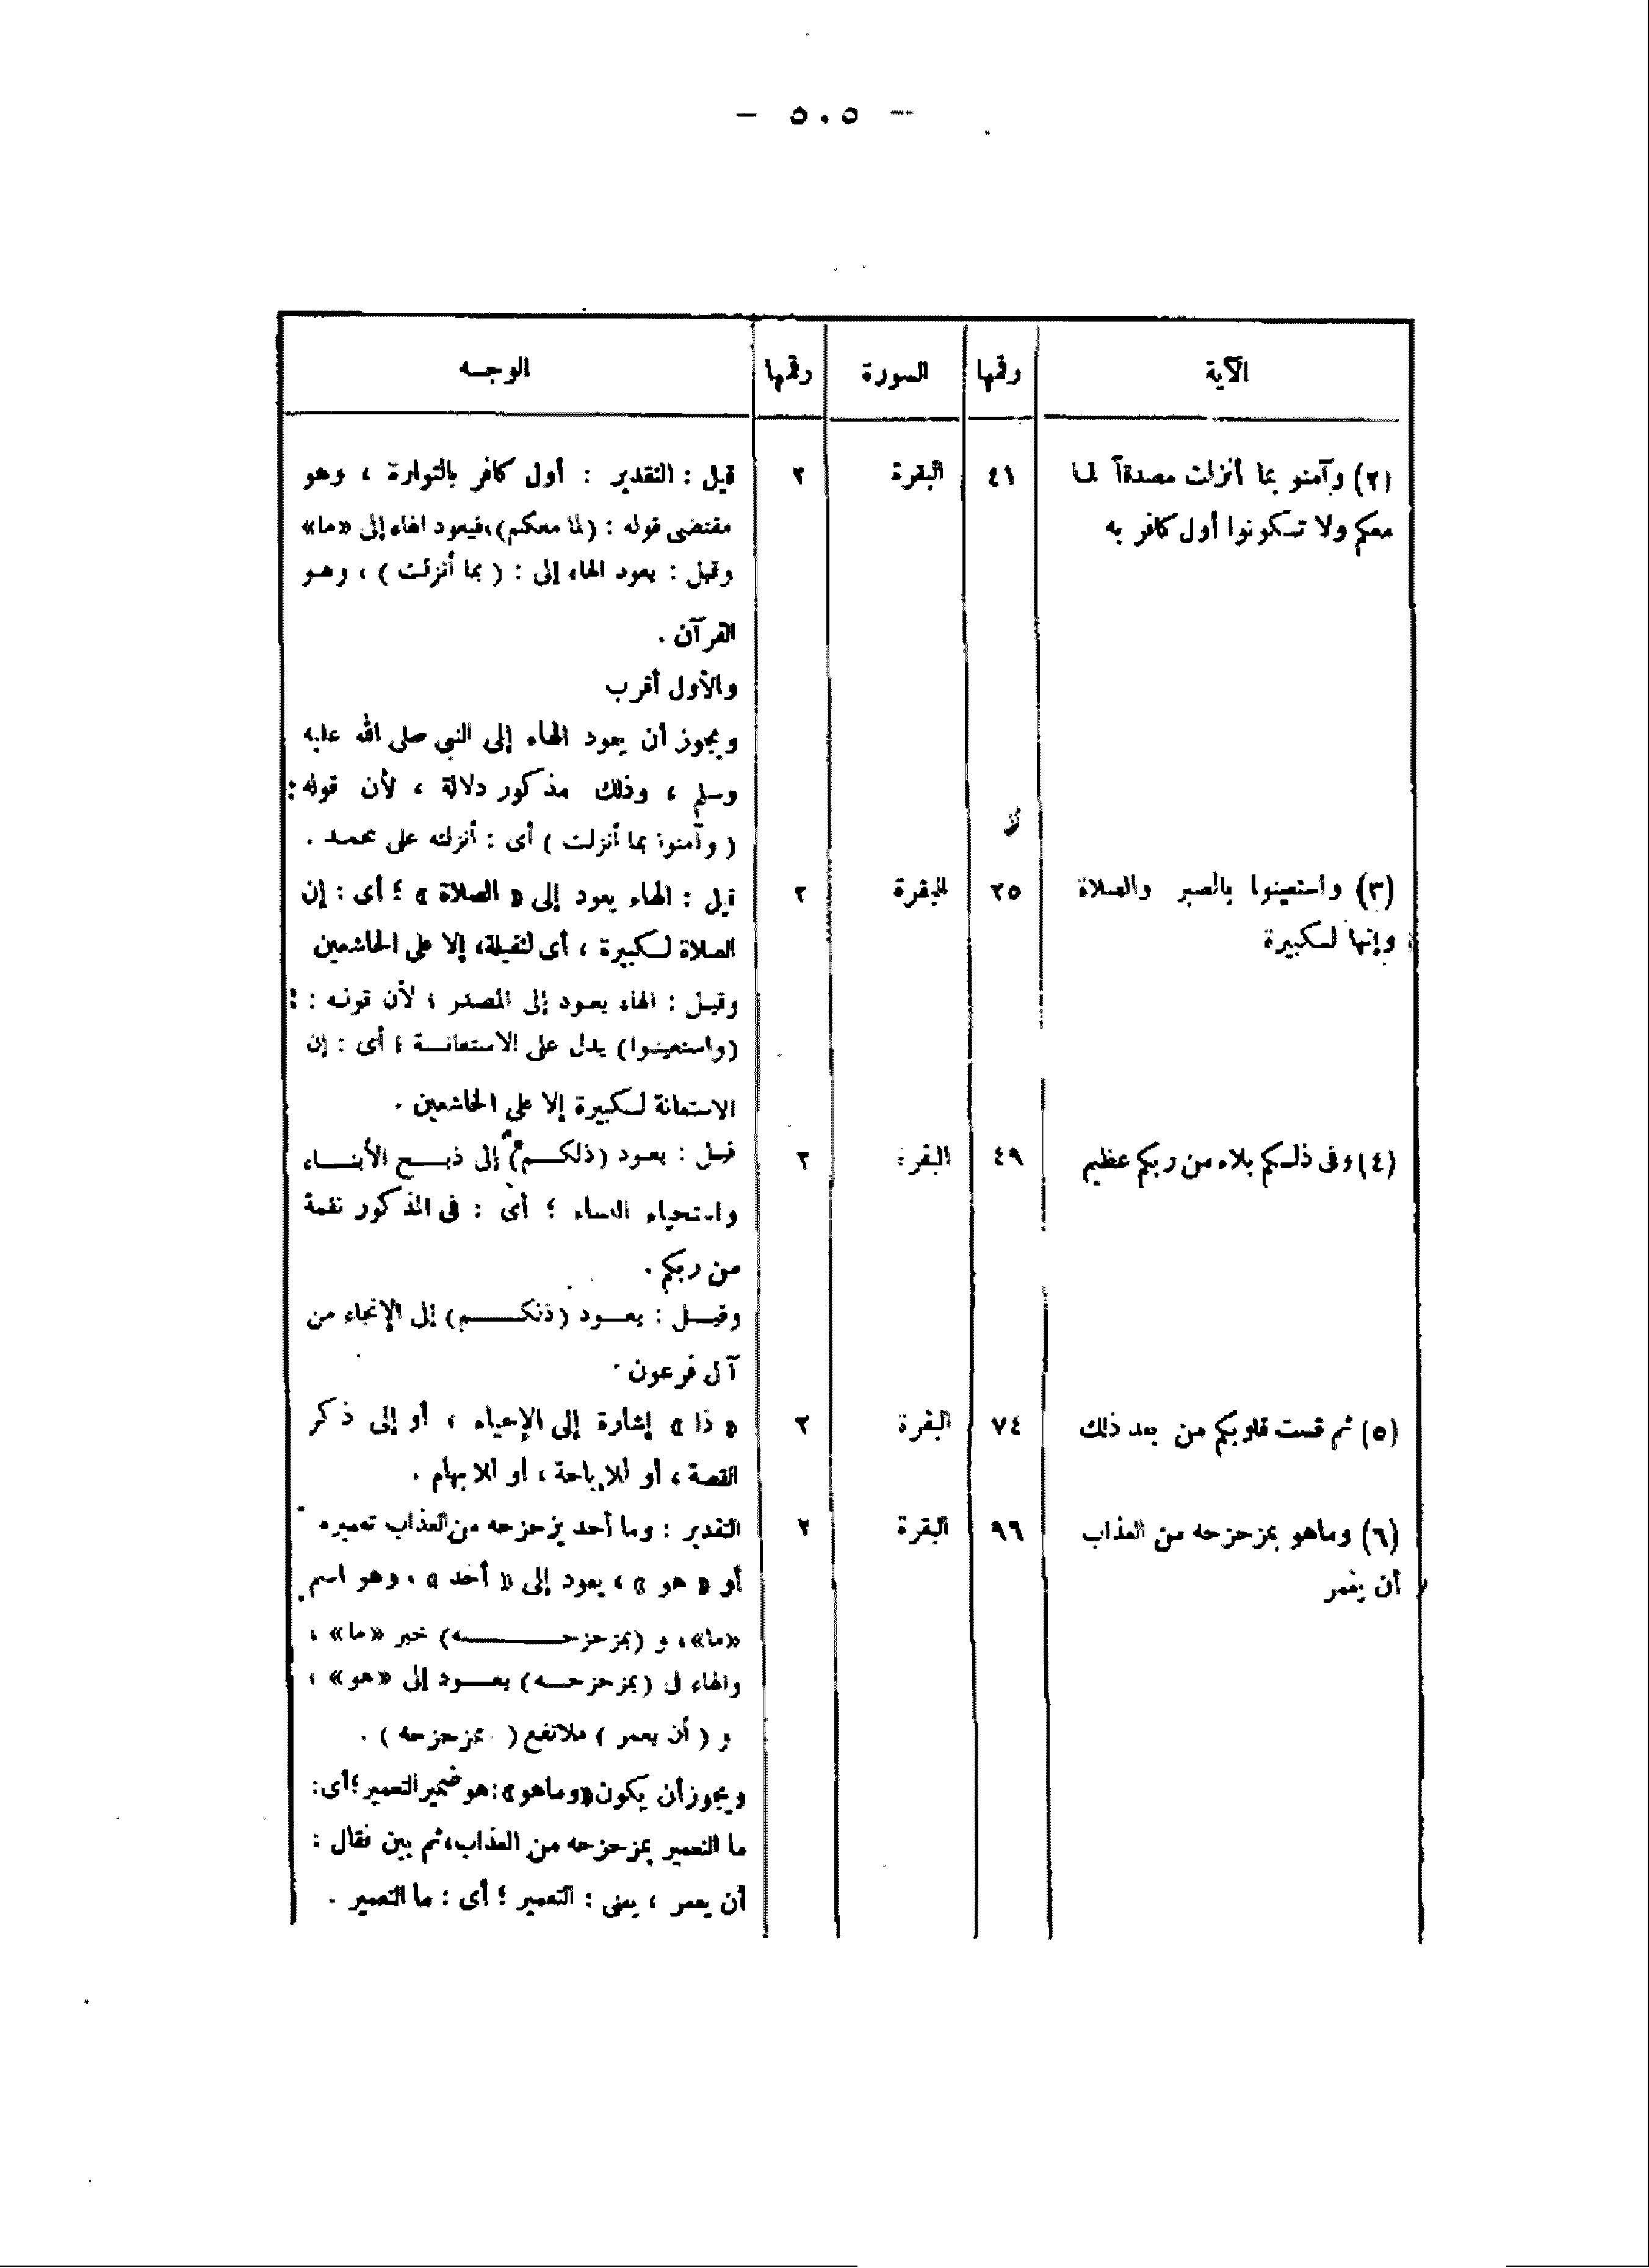 — ٥٠٥ —
الآية رقمها السورة رقمها الوجـه
(٢) وآمنو بما أنزلت مصدقاً لما ٤١ البقرة ٢ قيل : التقدير : أول كافر بالتوارة ، وهو
معكم ولا تـكونوا أول كافر به مقتضى قوله : (لما معكم)،فيعود الهاء إلى «ما»
وقيل : يعود الهاء إلى : ( بما أنزلت ) ، وهـو
القرآن .
والأول أقرب
ويجوز أن يعود الهاء إلى النبي صلى الله عليه
وسلم ، وذلك مذكور دلالة ، لأن قوله :
( وآمنوا بما أنزلت ) أى : أنزلته على محمـد .
(٣) واستعينوا بالصبر والصلاة ٢٥ البقرة ٢ قيل : الهاء يعود إلى « الصلاة » ؛ أى : إن
وإنها لـكبيرة الصلاة لـكبيرة ، أى لثقيلة، إلا على الخاشعين
وقيـل : الهاء يعـود إلى المصدر ، لأن قولـه :
(واستعينـوا) يدل على الاستعانـــة ؛ أى : إن
الاستعانة لـكبيرة إلا على الخاشعين .
(٤) وفى ذلـكم بلاء من ربكم عظيم ٤٩ البقرة ٢ قيـل : يعـود (ذلكــم) إلى ذبــح الأبنــاء
واستحياء النساء ؛ أى : فى المذكور نقمة
من ربكم .
وقيــل : يعــود (ذلكــــم) إلى الإنجاء من
آل فرعون .
(٥) ثم قست قلوبكم من بعد ذلك ٧٤ البقرة ٢ « ذا » إشارة إلى الإحياء ، أو إلى ذكر
القصة ، أو للإباحة ، أو للابهام .
(٦) وماهو بمزحزحه من العذاب ٩٦ البقرة ٢ التقدير : وما أحد يزحزحه من العذاب تعميره
أن يعمر أو « هو » ، يعود إلى « أحد » ، وهو اسم
«ما»، و (بمزحزحـــــــه) خبر «ما» ،
والهاء فى (بمزحزحــه) يعــود إلى «هو» ،
و ( أن يعمر ) ملاتفع ( بمزحزحه ) .
ويجوز أن يكون «وماهو» : هو ضمير التعمير ؛ أى :
ما التعمير بمزحزحه من العذاب، ثم بين فقال :
أن يعمر ، يعنى : التعمير ؛ أى : ما التعمير .